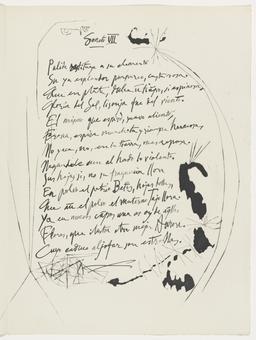 Soneto VII
Palida restituye a su elemento
Su ya esplendor purpureo, casta rosa
Que en planta dulce un tiempo, si espinosa
Gloria del Sol, lisonja fue del viento.
El mismo que espiró suave aliento
Fresca, espira marchita y siempre hermosa,
No yace, no, en la tierra, mas reposa,
Negandole aun el hado lo violento.
Sus hojas, si, no su fragancia llora
En polvo el patrio Betis, hojas bellas
Que aun en polvo el materno Tejo dora.
Ya en nuevos campos una es oy de aqllas
Flores, que ilustra otra mejor Aurora
Cuyo caduco aljofar son estrellas.